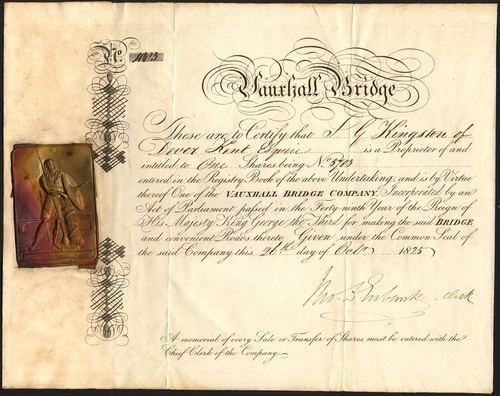 No. 1003
Vauxhall Bridge
These are to Certify that S G Kingston of
Dover Kent Esquire is a Proprietor of and
intitled to One Shares being No. 5703
entered in the Registry Book of the above Undertaking; and is by Virtue
thereof One of the VAUXHALL BRIDGE COMPANY, Incorporated by an
Act of Parliament passed in the Forty-ninth Year of the Reign of
His Majesty King George the Third for making the said BRIDGE
and convenient Roads thereto Given under the Common Seal of
the said Company this 26th day of Octr. 1825
Clerk
A memorial of every Sale or Transfer of Shares, must be entered with the
Chief Clerk of the Company.